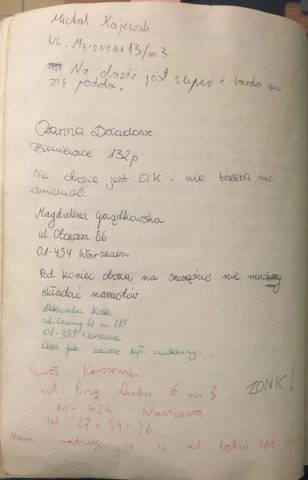 Michał Kajewski
ul. Meisnera 13/m3
Na obozie jest super i bardzo mi
się podoba.
Oxanna Dziadosz
Bieniewice 132p
Na obozie jest O.K i nie trzeba nic
zmieniać.
Magdalena
ul. Obozowa 86
01-434 Warszawa
Pod koniec obozu na szczęście nie musimy
składać namiotów.
Aleksandra
m 115
01-355 Warszawa
Obóz jak zawsze był cudowny.
Paweł
ul 6 m 3
01-424 Warszawa
tel 37-39-26
ZONK!
Mam nadzieję, że za rok będzie tak samo